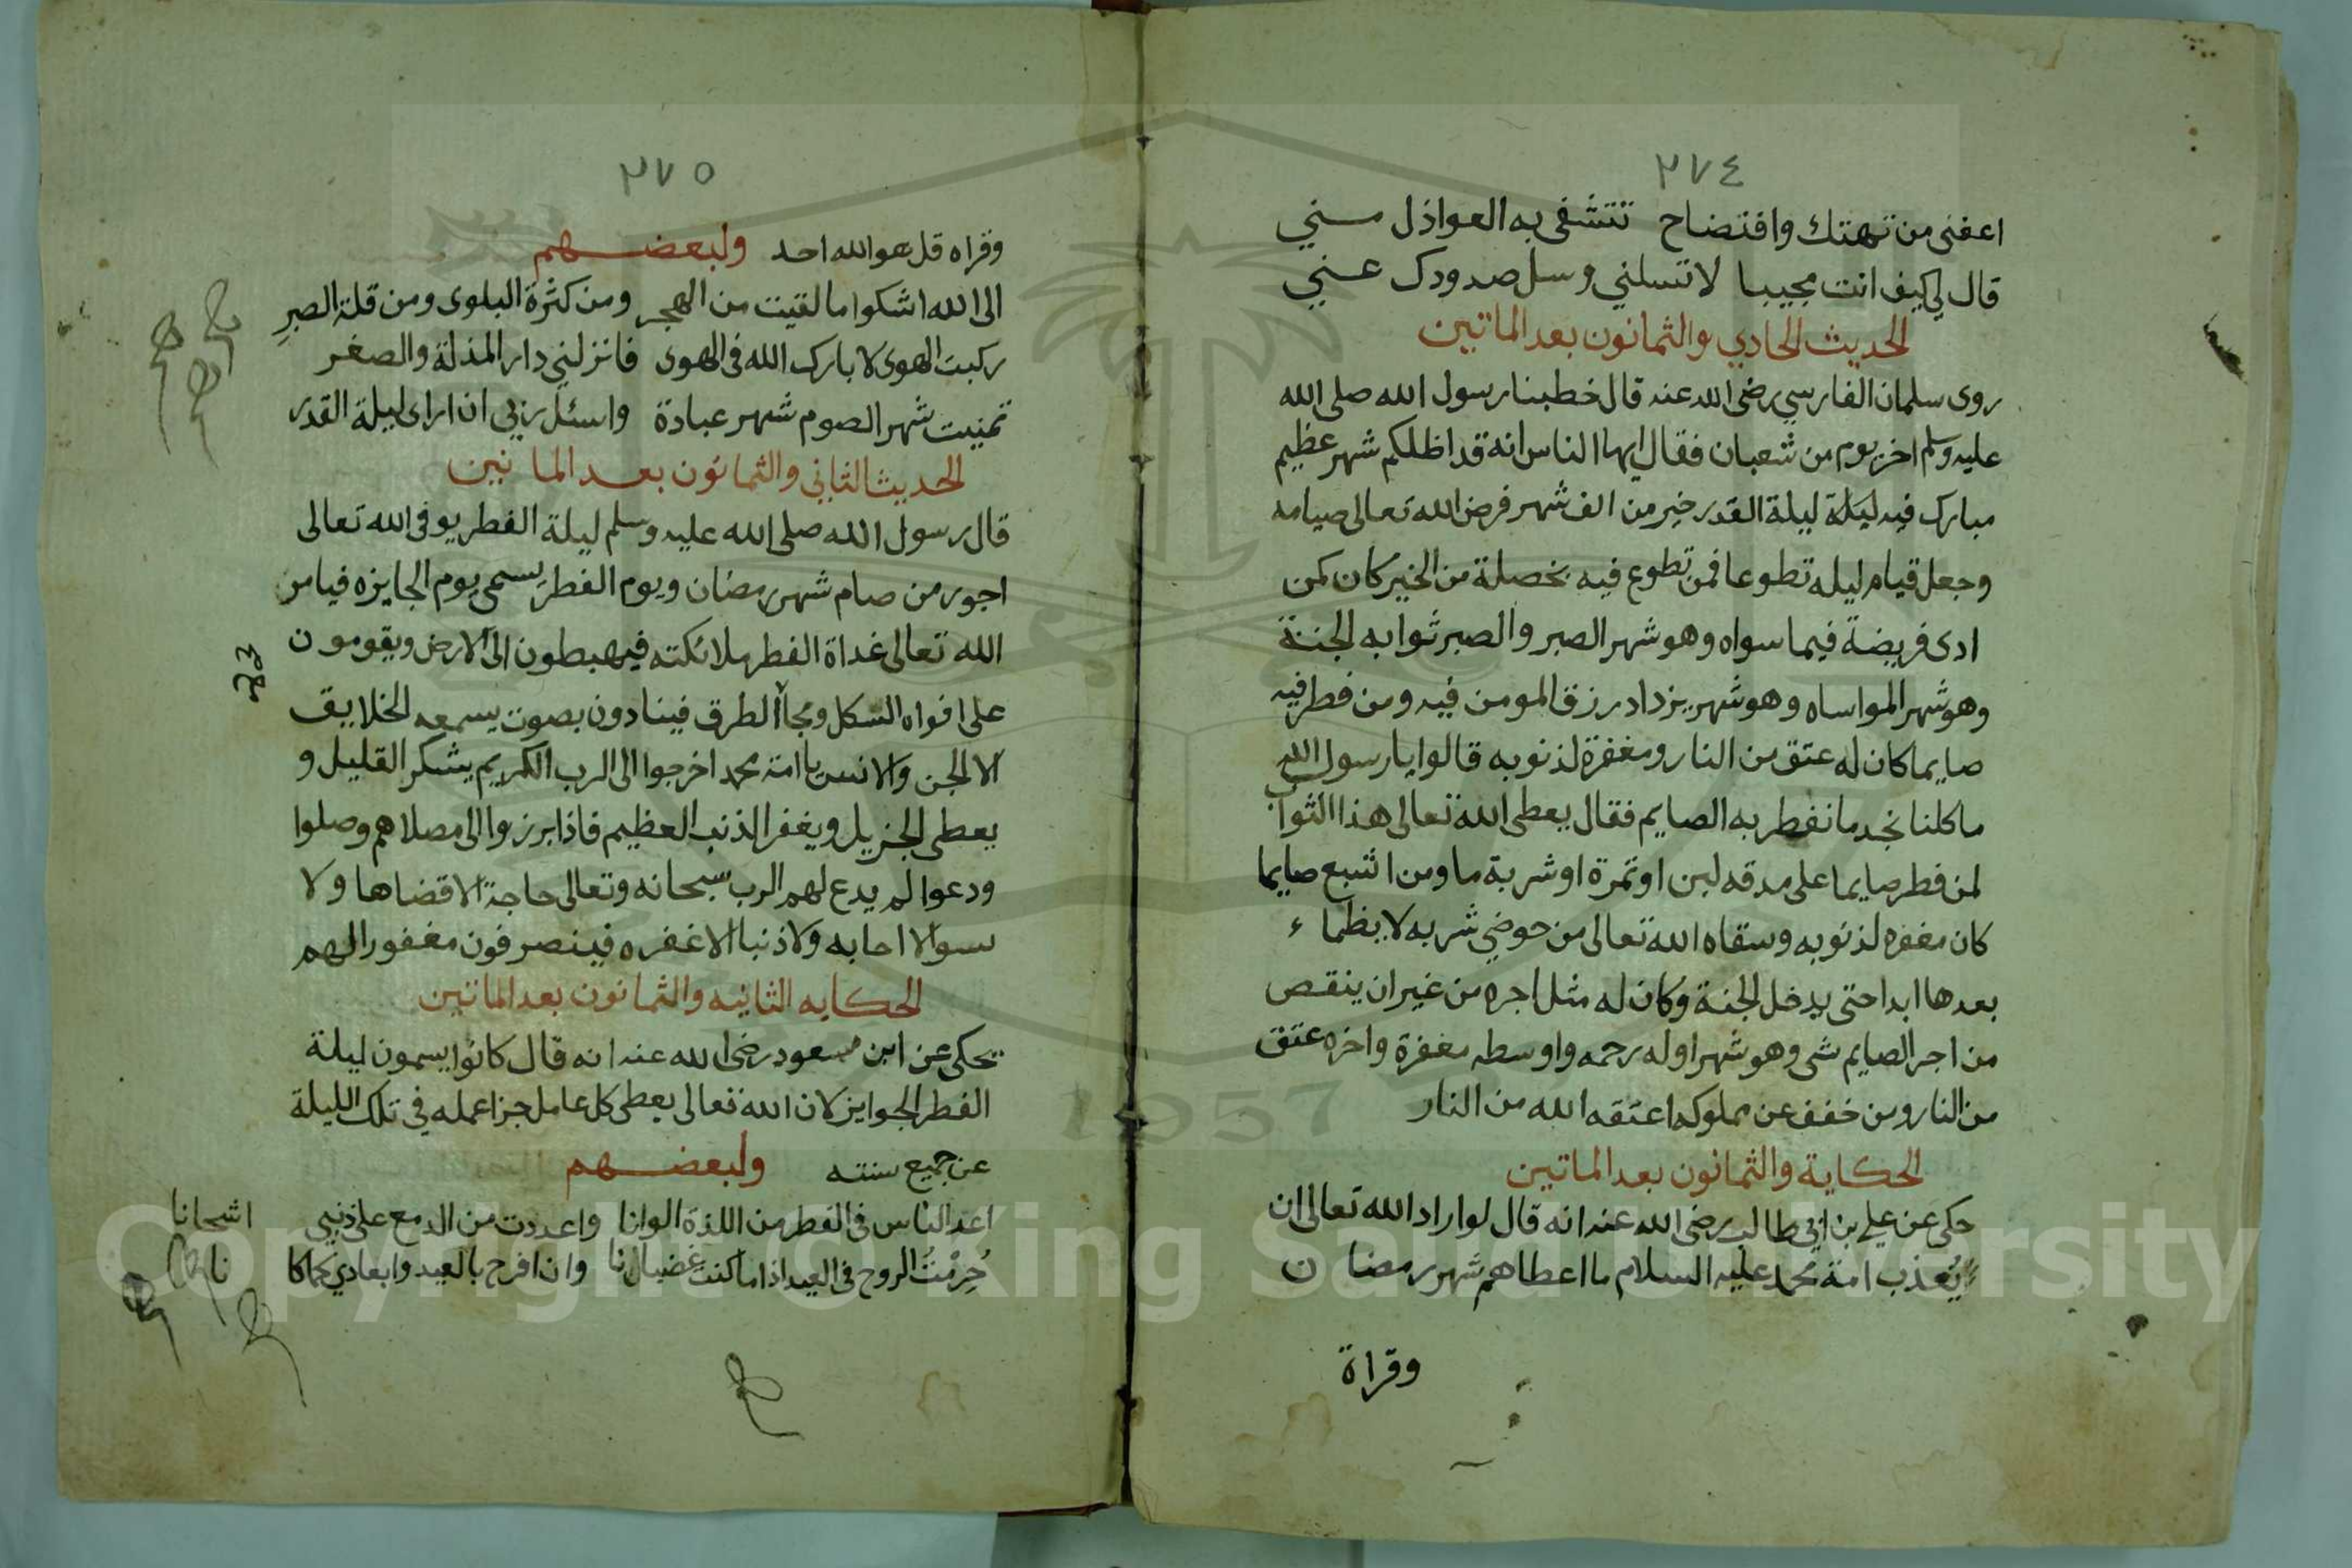 ٢٧٤
اعفني من تهتك وافتضاح تتشفى به العواذل مـــني
قال لي كيف انت مجيبا لا تسلني وسل صدودك عـــني
الحديث الحادي والثمانون بعد الماتين
روى سلمان الفارسي رضى الله عنه قال خطبنا رسول الله صلى الله
عليه وسلم اخر يوم من شعبان فقال ايها الناس انه قد اظلكم شهر عظيم
مبارك فيه ليلة ليلة القدر خير من الف شهر فرض الله تعالى صيامه
وجعل قيام ليله تطوعا فمن تطوع فيه بخصلة من الخير كان كمن
ادى فريضة فيما سواه وهو شهر الصبر والصبر ثوابه الجنة
وهو شهر المواساه وهو شهر يزداد رزق المومن فيه ومن فطر فيه
صايما كان له عتق من النار ومغفرة لذنوبه قالوا يا رسول الله
ما كلنا نجد ما نفطر به الصايم فقال يعطى الله تعالى هذا الثواب
لمن فطر صايما على مدقه لبن او تمرة او شربة ما ومن اشبع صايما
كان مغفره لذنوبه وسقاه الله تعالى من حوضي شربه لا يظماء
بعدها ابدا حتى يدخل الجنة وكان له مثل اجره من غير ان ينقص
من اجر الصايم شى وهو شهر اوله رحمه واوسطه مغفرة واخره عتق
من النار ومن خفف عن مملوكه اعتقه الله من النار
الحكاية والثمانون بعد الماتين
حكى عن علي بن ابي طالب رضى الله عنه انه قال لو اراد الله تعالى ان
يُعذب امة محمد عليه السلام ما اعطاهم شهر رمضان
وقراة
٢٧٥
وقراه قل هو الله احد ولبعضـــهم
الى الله اشكوا ما لقيت من الهجر ومن كثرة البلوى ومن قلة الصبرِ
ركبت الهوى لا بارك الله فى الهوى فانزلني دار المذلة والصغر
تمنيت شهر الصوم شهر عبادة واسئل ربي ان ارى ليلة القدر
الحديث الثاني والثمانون بعد الماتين
قال رسول الله صلى الله عليه وسلم ليلة الفطر يوفى الله تعالى
اجور من صام شهر رمضان ويوم الفطر يسمى يوم الجايزه فيامر
الله تعالى غداة الفطر ملائكته فيهبطون الى الارض ويقومون
على افواه السكك ومجاآ الطرق فينادون بصوت يسمعه الخلايق
الا الجن والانس يا امة محمد اخرجوا الى الرب الكريم يشكر القليل و
يعطى الجزيل ويغفر الذنب العظيم فاذا برزوا الى مصلاهم وصلوا
ودعوا لم يدع لهم الرب سبحانه وتعالى حاجة الا قضاها ولا
سوالا اجابه ولا ذنبا الا غفره فينصرفون مغفورا لهم
الحكايه الثانيه والثمانون بعد الماتين
يحكى عن ابن مسعود رضى الله عنه انه قال كانوا يسمون ليلة
الفطر الجوايز لان الله تعالى يعطى كل عامل جزا عمله في تلك الليلة
عن جميع سنته ولبعضـــهم
اعد الناس فى الفطر من اللذة الوانا واعددت من الدمع على ذنبي اشجانا
حُرِمْتُ الروح فى العيد اذا ما كنت غضبانا وان افرح بالعيد وابعادي كما كانا
Copyright © King Saud University
1957